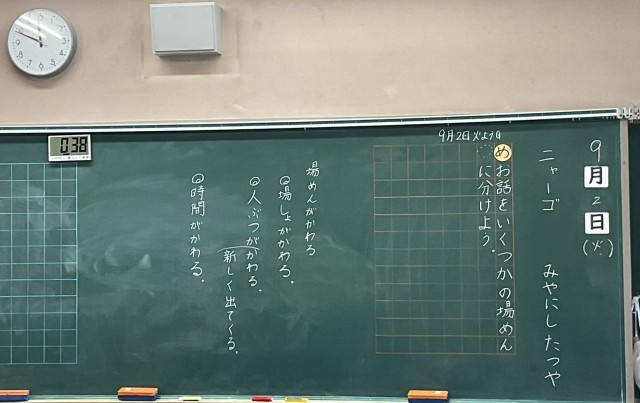 9月2日(火)
ニャーゴ　みやにしたつや
9月2日火よう日
めお話をいくつかの場めん
に分けよう。
場めんがかわる
◎場しょがかわる。
◎人ぶつがかわる。
新しく出てくる。
◎時間がかわる。
038